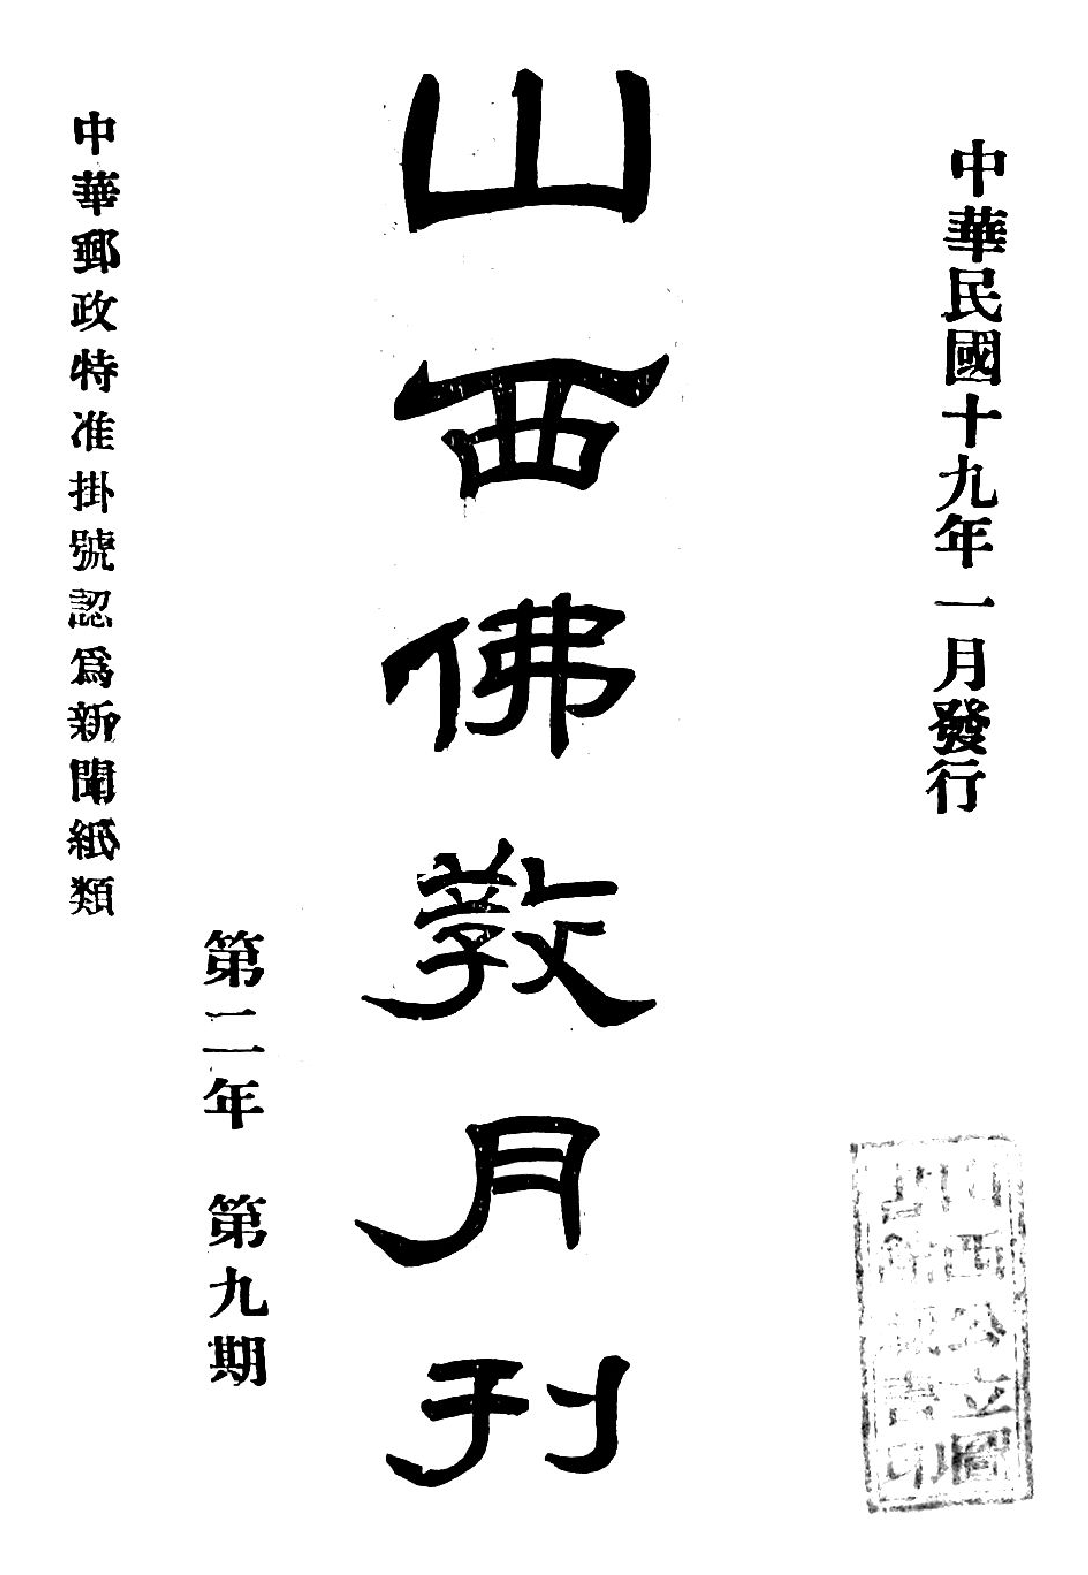 中華民國十九年一月發行
山西佛教月刊
第二年 第九期
中華郵政特准掛號認爲新聞紙類
山西公立圖
書印